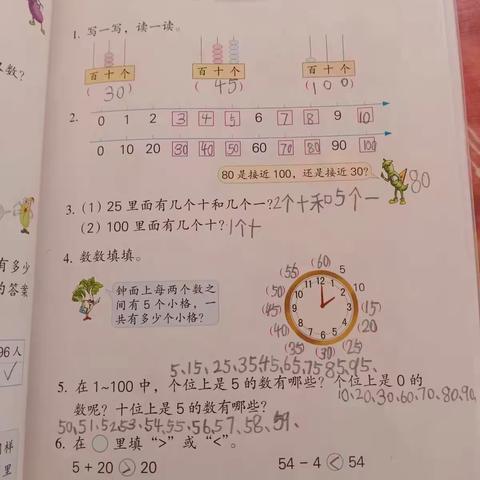 1. 写一写，读一读。
百 十 个 百 十 个 百 十 个
( 30 ) ( 45 ) ( 100 )
数？
2. 0 1 2 3 4 5 6 7 8 9 10
0 10 20 30 40 50 60 70 80 90 100
80 是接近 100，还是接近 30？ 80
3. (1) 25 里面有几个十和几个一？2个十和5个一
(2) 100 里面有几个十？1个十
4. 数数填填。
钟面上每两个数之
间有 5 个小格，一
共有多少个小格？
(60) 5 10 (15) (20) (25) (30) (35) (40) (45) (50) (55)
12 1 2 3 4 5 6 7 8 9 10 11
有多少
的答案
96 人
✓
5、15、25、35 45、65、75 85、95、
5. 在 1~100 中，个位上是 5 的数有哪些？个位上是 0 的
10、20、30、60、70、80、90、
数呢？十位上是 5 的数有哪些？
50、51、52、53、54、55、56、57、58、59、
6. 在 ○ 里填 “>” 或 “<”。
5 + 20 > 20 54 - 4 < 54
同样
里